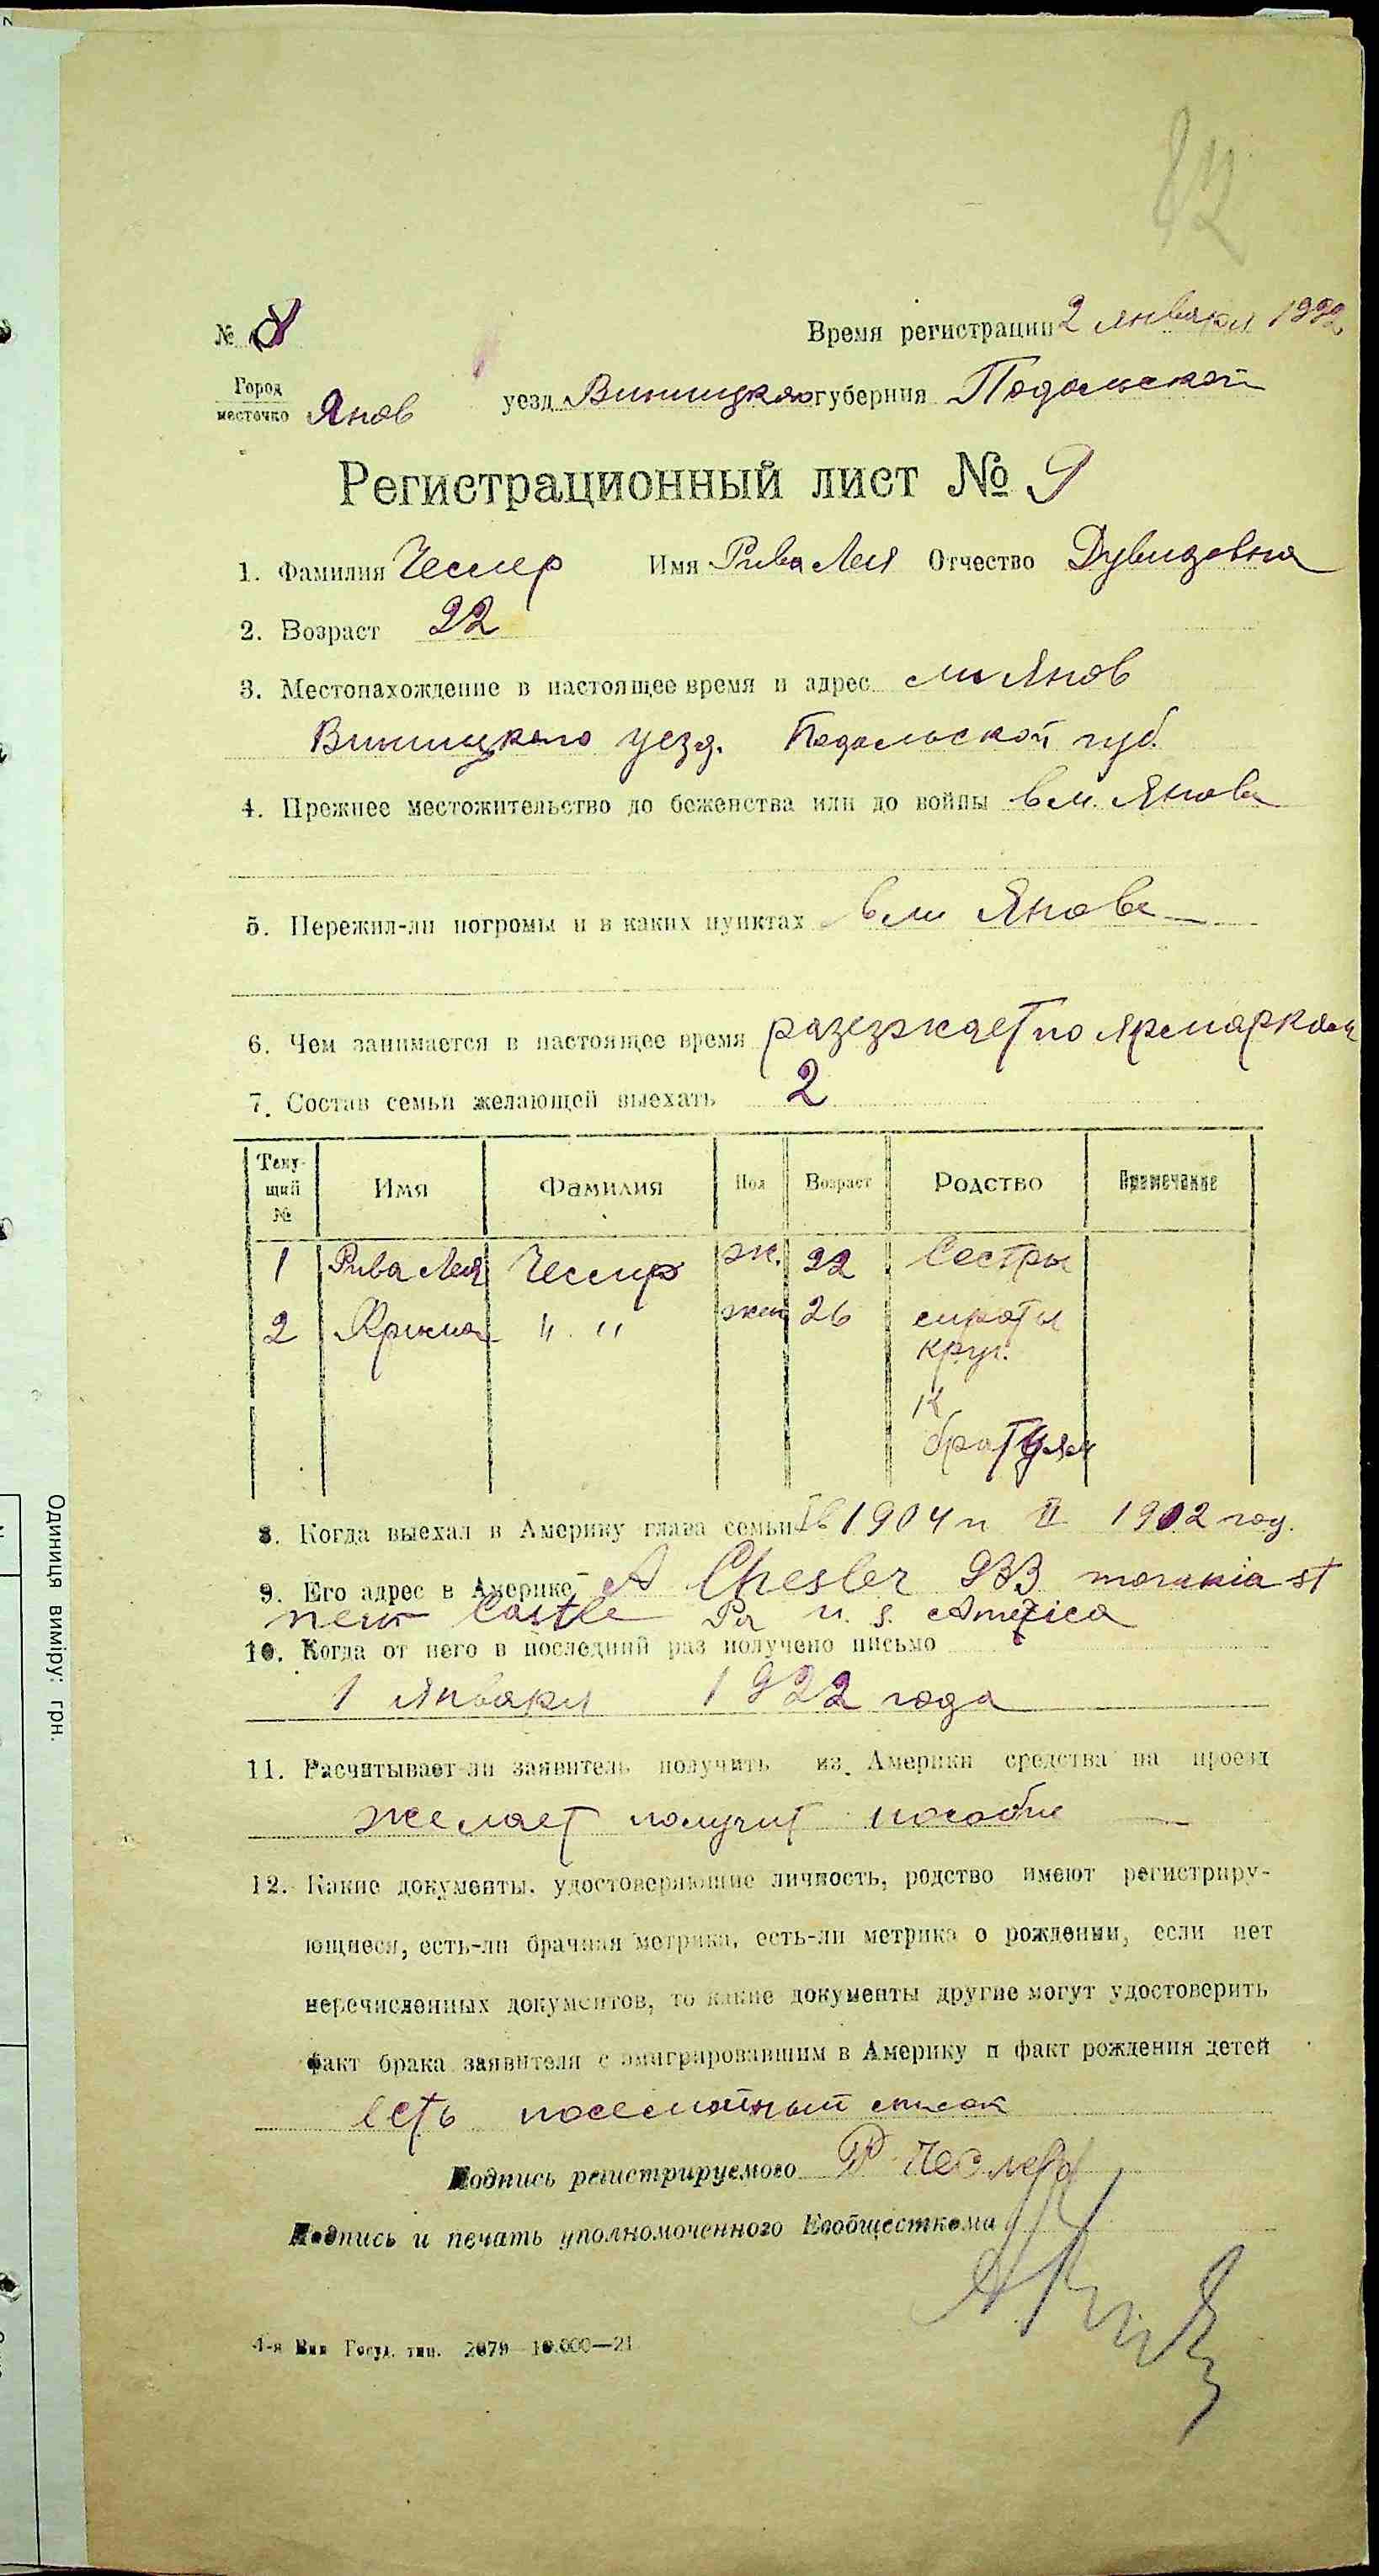 82
№ 8 Время регистрации 2 января 1922
Город
местечко Янов уезд Виницкого губерния Подольской
Регистрационный лист № 9
1. Фамилия Чеслер Имя Рива Лея Отчество Дувидовна
2. Возраст 22
3. Местонахождение в настоящее время и адрес м Янов
Виницкого уезд. Подольской губ.
4. Прежнее местожительство до беженства или до войны в м. Янове
5. Пережил-ли погромы и в каких пунктах в м Янове
6. Чем занимается в настоящее время разезжает по ярмаркам
7. Состав семьи желающей выехать 2
Теку-
щий
№ Имя Фамилия Пол Возраст Родство Примечание
1 Рива Лея Чеслер ж. 22 Сестры
2 " " жен 26 сироты
круг.
к
братьям
8. Когда выехал в Америку глава семьи I в 1904 и II 1912 год.
9. Его адрес в Америке A Chesler 933 morakia st
new Castle Pa u. s. America
10. Когда от него в последний раз получено письмо
1 января 1922 года
11. Расчитывает-ли заявитель получить из Америки средства на проезд
желает получит пособие
12. Какие документы, удостоверяющие личность, родство имеют регистриру-
ющиеся, есть-ли брачная метрика, есть-ли метрика о рождении, если нет
перечисленных документов, то какие документы другие могут удостоверить
факт брака заявителя с эмигрировавшим в Америку и факт рождения детей
есть посемейный список
Подпись регистрируемого Р Чеслер
Подпись и печать уполномоченного Евобщесткома
4-я Вин Госуд. тип. 2079—10.000—21
Одиниця виміру: грн.